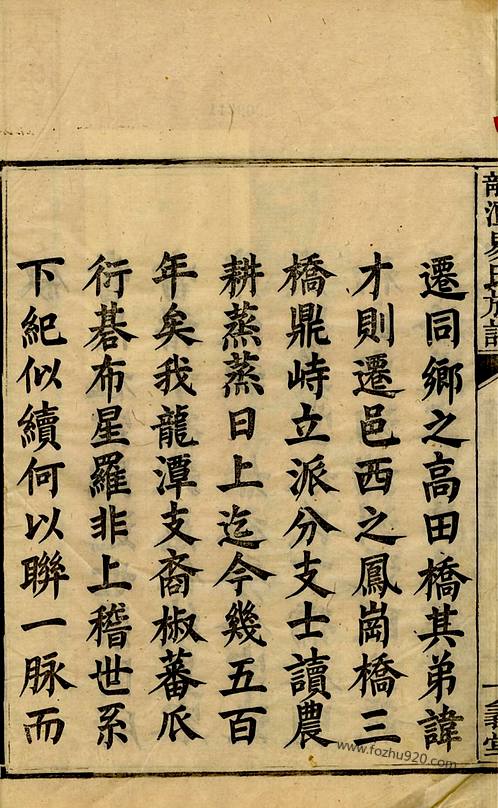 遷同鄉之高田橋其弟諱
才則遷邑西之鳳崗橋三
橋鼎峙立派分支士讀農
耕蒸蒸日上迄今幾五百
年矣我龍潭支裔椒蕃瓜
衍碁布星羅非上稽世系
下紀似續何以聯一脉而
www.fozhu920.com